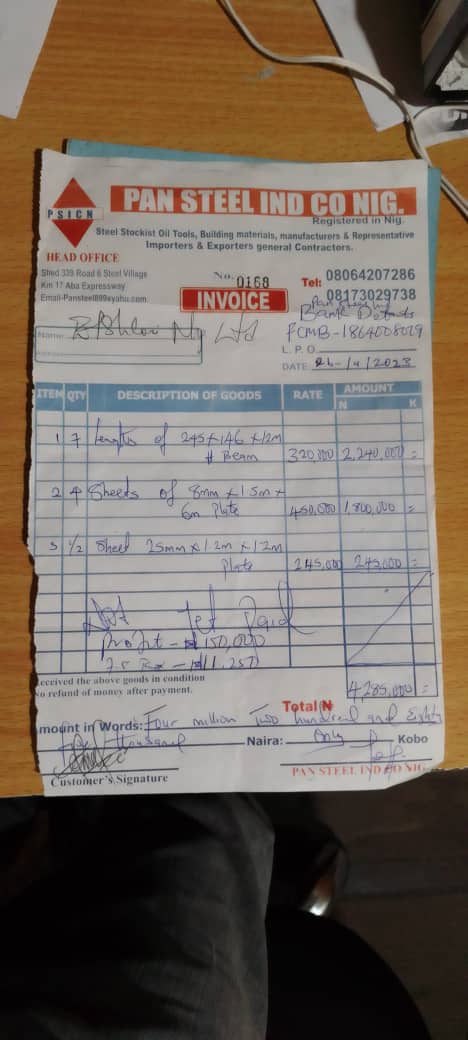 PSICN
PAN STEEL IND CO NIG.
Registered in Nig.
Steel Stockist Oil Tools, Building materials, manufacturers & Representative
Importers & Exporters general Contractors.
HEAD OFFICE
Shed 339 Road 6 Steel Village
Km 17 Aba Expressway
Email-Pansteel899@yahu.com
No. 0168
INVOICE
Tel: 08064207286
08173029738
Bank Details
FCMB-1864008029
Name: Ltd
L. P. O.
DATE 26-/4/2023
ITEM QTY DESCRIPTION OF GOODS RATE AMOUNT
N K
1 7 Lengths of 245x146x12m
H Beam 320,000 2,240,000 =
2 4 Sheets of 8mm x 1.5m x
6m Plate 450,000 1,800,000 =
3 1/2 Sheet 25mm x 1.2m x 1.2m
Plate 245,000 245,000 =
Not Yet Paid
Profit - ₦150,000
7.5 - ₦11,250
eceived the above goods in condition
No refund of money after payment.
Total ₦ 4,285,000 =
mount in Words: Four million Two hundred and Eighty
thousand Naira: Only Kobo
Customer's Signature
PAN STEEL IND CO NIG.